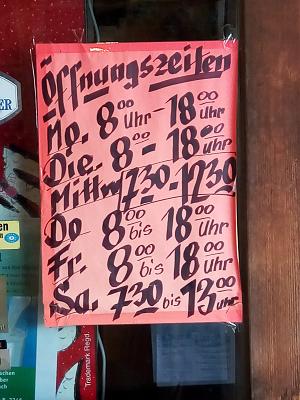 Öffnungszeiten
Mo. 8⁰⁰ Uhr - 18⁰⁰ Uhr
Die. 8⁰⁰ - 18⁰⁰ Uhr
Mittw 7³⁰ - 12³⁰
Do 8⁰⁰ bis 18⁰⁰ Uhr
Fr. 8⁰⁰ bis 18⁰⁰ Uhr
Sa. 7³⁰ bis 13⁰⁰ Uhr
ER
Trademark Regd.